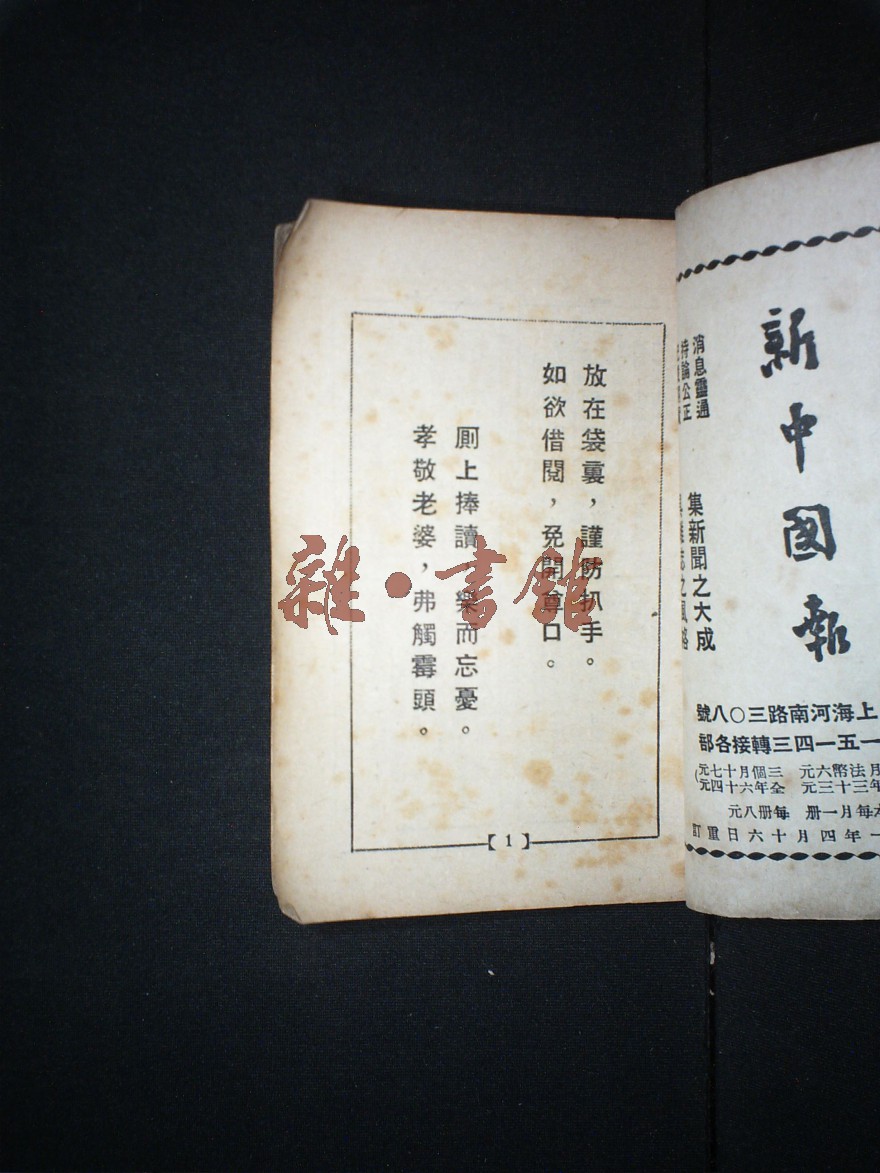 新中國報
消息靈通
持論公正
集新聞之大成
具雜誌之風格
上海河南路三〇八號
一五一四三轉接各部
月法幣六元 三個月十七元
年三十三元 全年六十四元
本每月一冊 每冊八元
一年四月十六日重訂
放在袋裏，謹防扒手。
如欲借閱，免開尊口。
厠上捧讀，樂而忘憂。
孝敬老婆，弗觸霉頭。
【1】
雜·書館